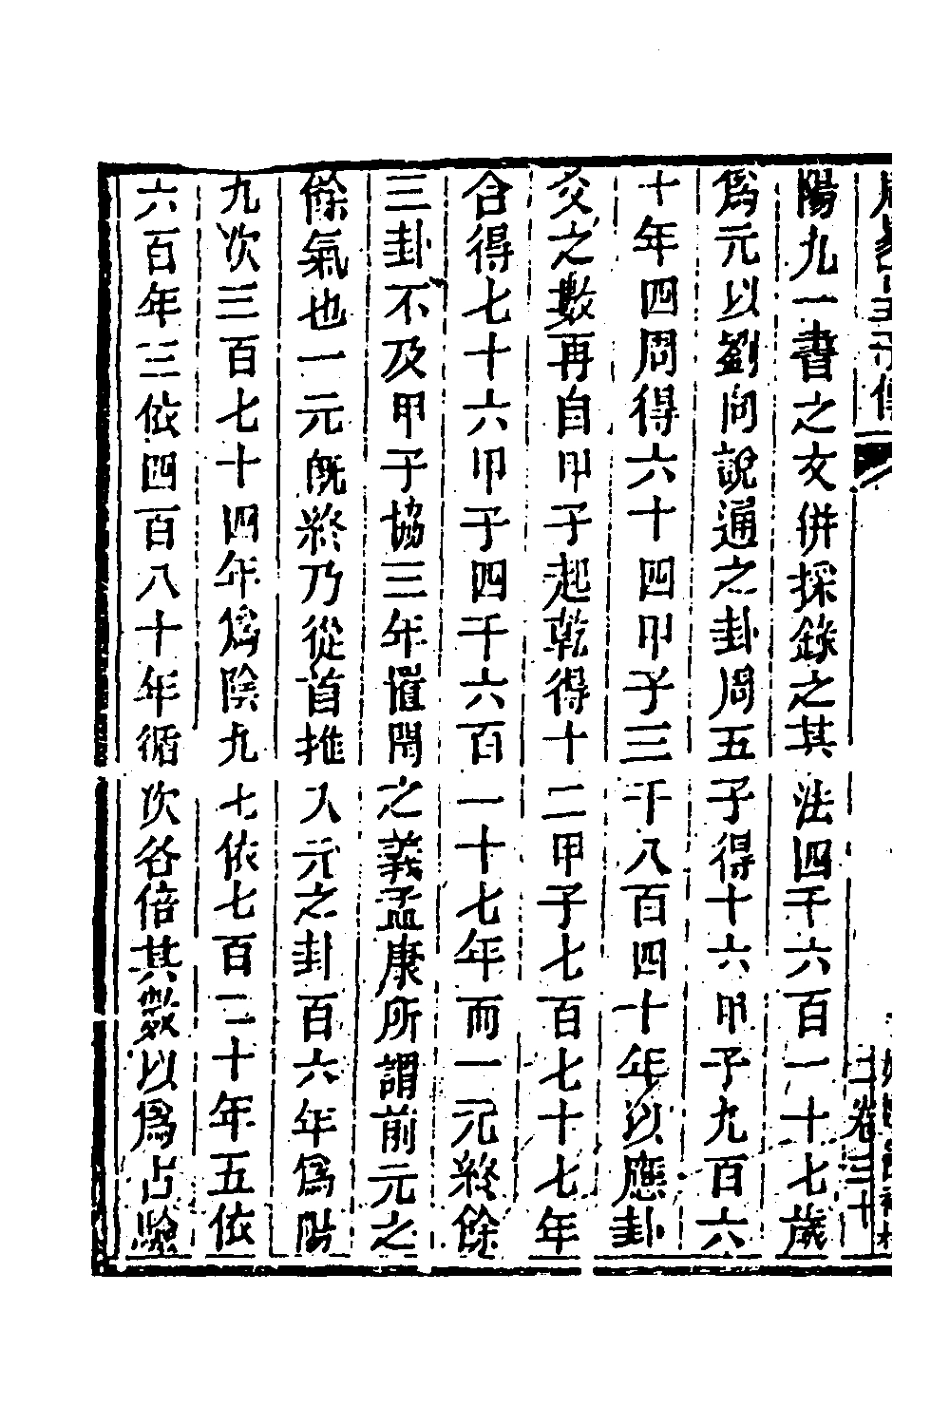 陽九一書之文併採錄之其法四千六百一十七歲
爲元以劉向說通之卦周五子得十六甲子九百六
十年四周得六十四甲子三千八百四十年以應卦
爻之數再自甲子起乾得十二甲子七百七十七年
合得七十六甲子四千六百一十七年而一元終餘
三卦不及甲子協三年僅閏之義孟康所謂前元之
餘氣也一元旣終乃從首推入元之卦百六年爲陽
九次三百七十四年爲陰九七依七百二十年五依
六百年三依四百八十年循次各倍其數以爲占驗